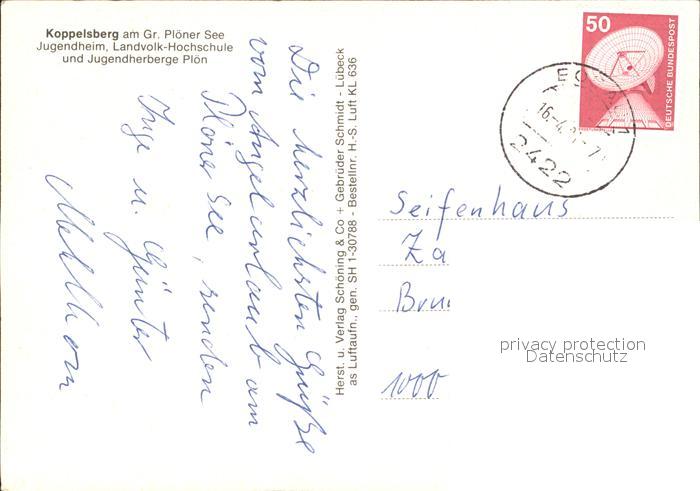 Koppelsberg am Gr. Plöner See
Jugendheim, Landvolk-Hochschule
und Jugendherberge Plön
Die herzlichsten Grüße
vom Angelurlaub am
Plöner See, senden
Inge u. Günter
Herst. u. Verlag Schöning & Co + Gebrüder Schmidt - Lübeck
as Luftaufn., gen. SH 1-30788 - Bestellnr. H.-S. Luft KL 636
50
DEUTSCHE BUNDESPOST
2422
Seifenhaus
Za
1000
privacy protection
Datenschutz